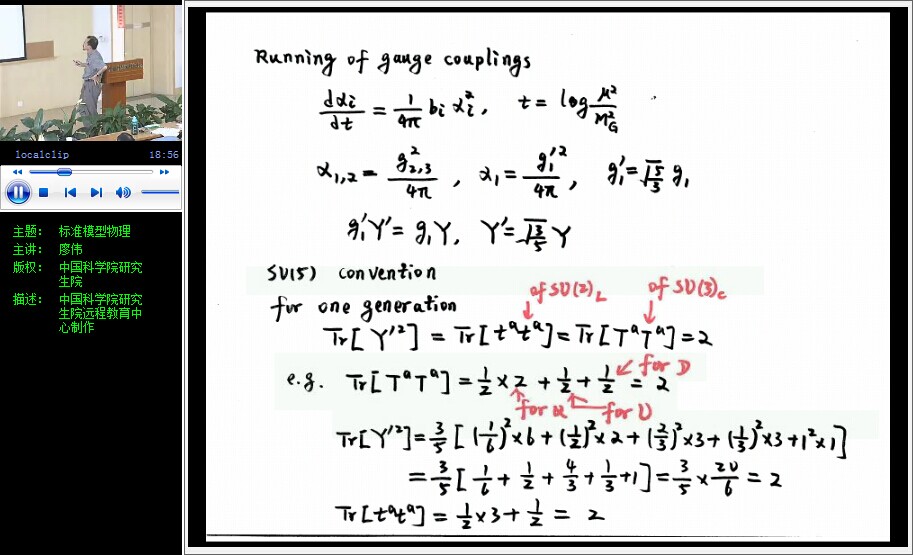 localclip 18:56
主题: 标准模型物理
主讲: 廖伟
版权: 中国科学院研究
生院
描述: 中国科学院研究
生院远程教育中
心制作
Running of gauge couplings
dαi/dt = 1/4π bi αi², t = log μ²/M²G
α1,2 = g²2,3/4π , α1 = g1'²/4π , g1' = √5/3 g1
g1'Y' = g1Y, Y' = √3/5 Y
SU(5) convention
of SU(2)L of SU(3)c
for one generation
Tr[Y'²] = Tr[tᵃtᵃ] = Tr[TᵃTᵃ] = 2
for D
e.g. Tr[TᵃTᵃ] = 1/2 × 2 + 1/2 + 1/2 = 2
for Q for U
Tr[Y'²] = 3/5 [(1/6)² × 6 + (1/2)² × 2 + (2/3)² × 3 + (1/3)² × 3 + 1² × 1]
= 3/5 [1/6 + 1/2 + 4/3 + 1/3 + 1] = 3/5 × 20/6 = 2
Tr[tᵃtᵃ] = 1/2 × 3 + 1/2 = 2